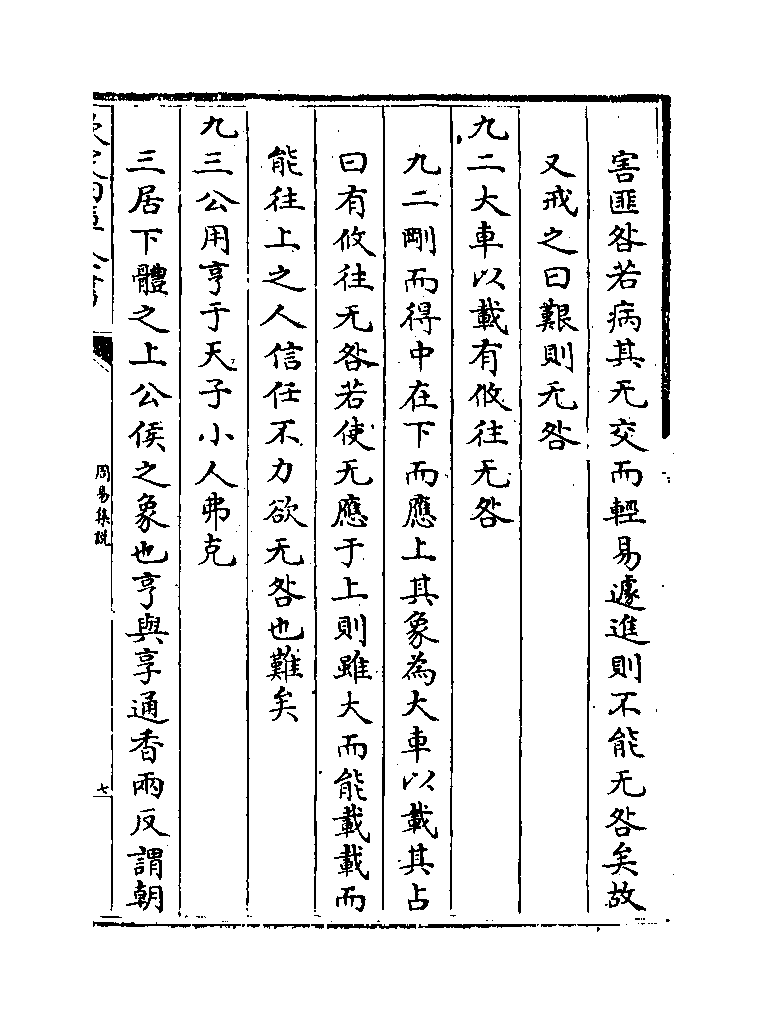 害匪咎若病其无交而輕易遽進則不能无咎矣故
又戒之曰艱則无咎
九二大車以載有攸往无咎
九二剛而得中在下而應上其象為大車以載其占
曰有攸往无咎若使无應于上則雖大而能載載而
能往上之人信任不力欲无咎也難矣
九三公用亨于天子小人弗克
三居下體之上公侯之象也亨與享通香兩反謂朝
周易集說
七